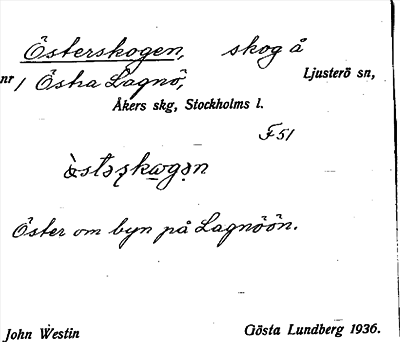 Österskogen, skog å
Ljusterö sn,
nr 1 Östra Lagnö,
Åkers skg, Stockholms l.
F 51
Öster om byn på Lagnöön.
John Westin
Gösta Lundberg 1936.